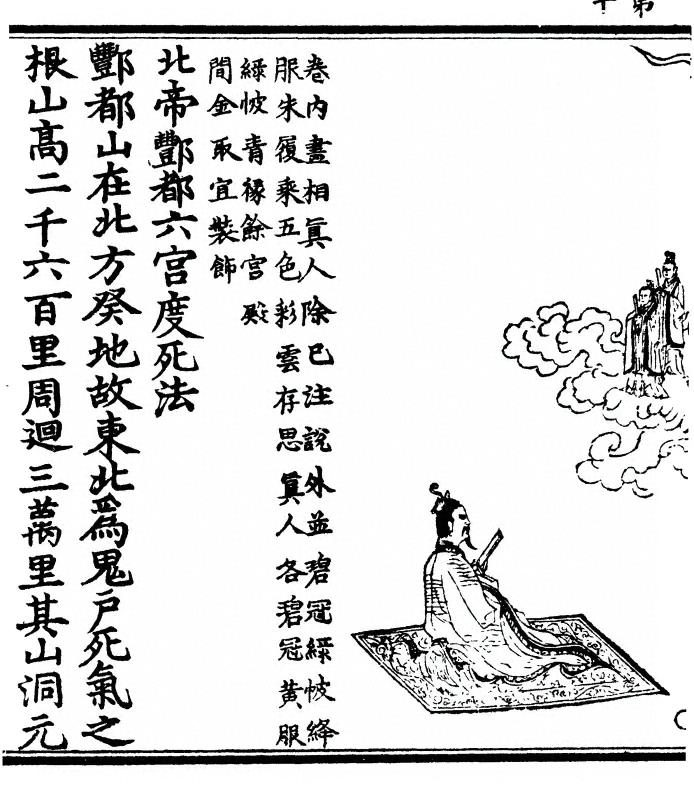 卷内畫相眞人除已注說外並碧冠緑帔絳
服朱履乘五色彩雲存思眞人各碧冠黃服
緑帔青褖餘宮殿
間金取宜裝飾
北帝酆都六宮度死法
酆都山在北方癸地故東北爲鬼戶死氣之
根山髙二千六百里周迴三萬里其山洞元